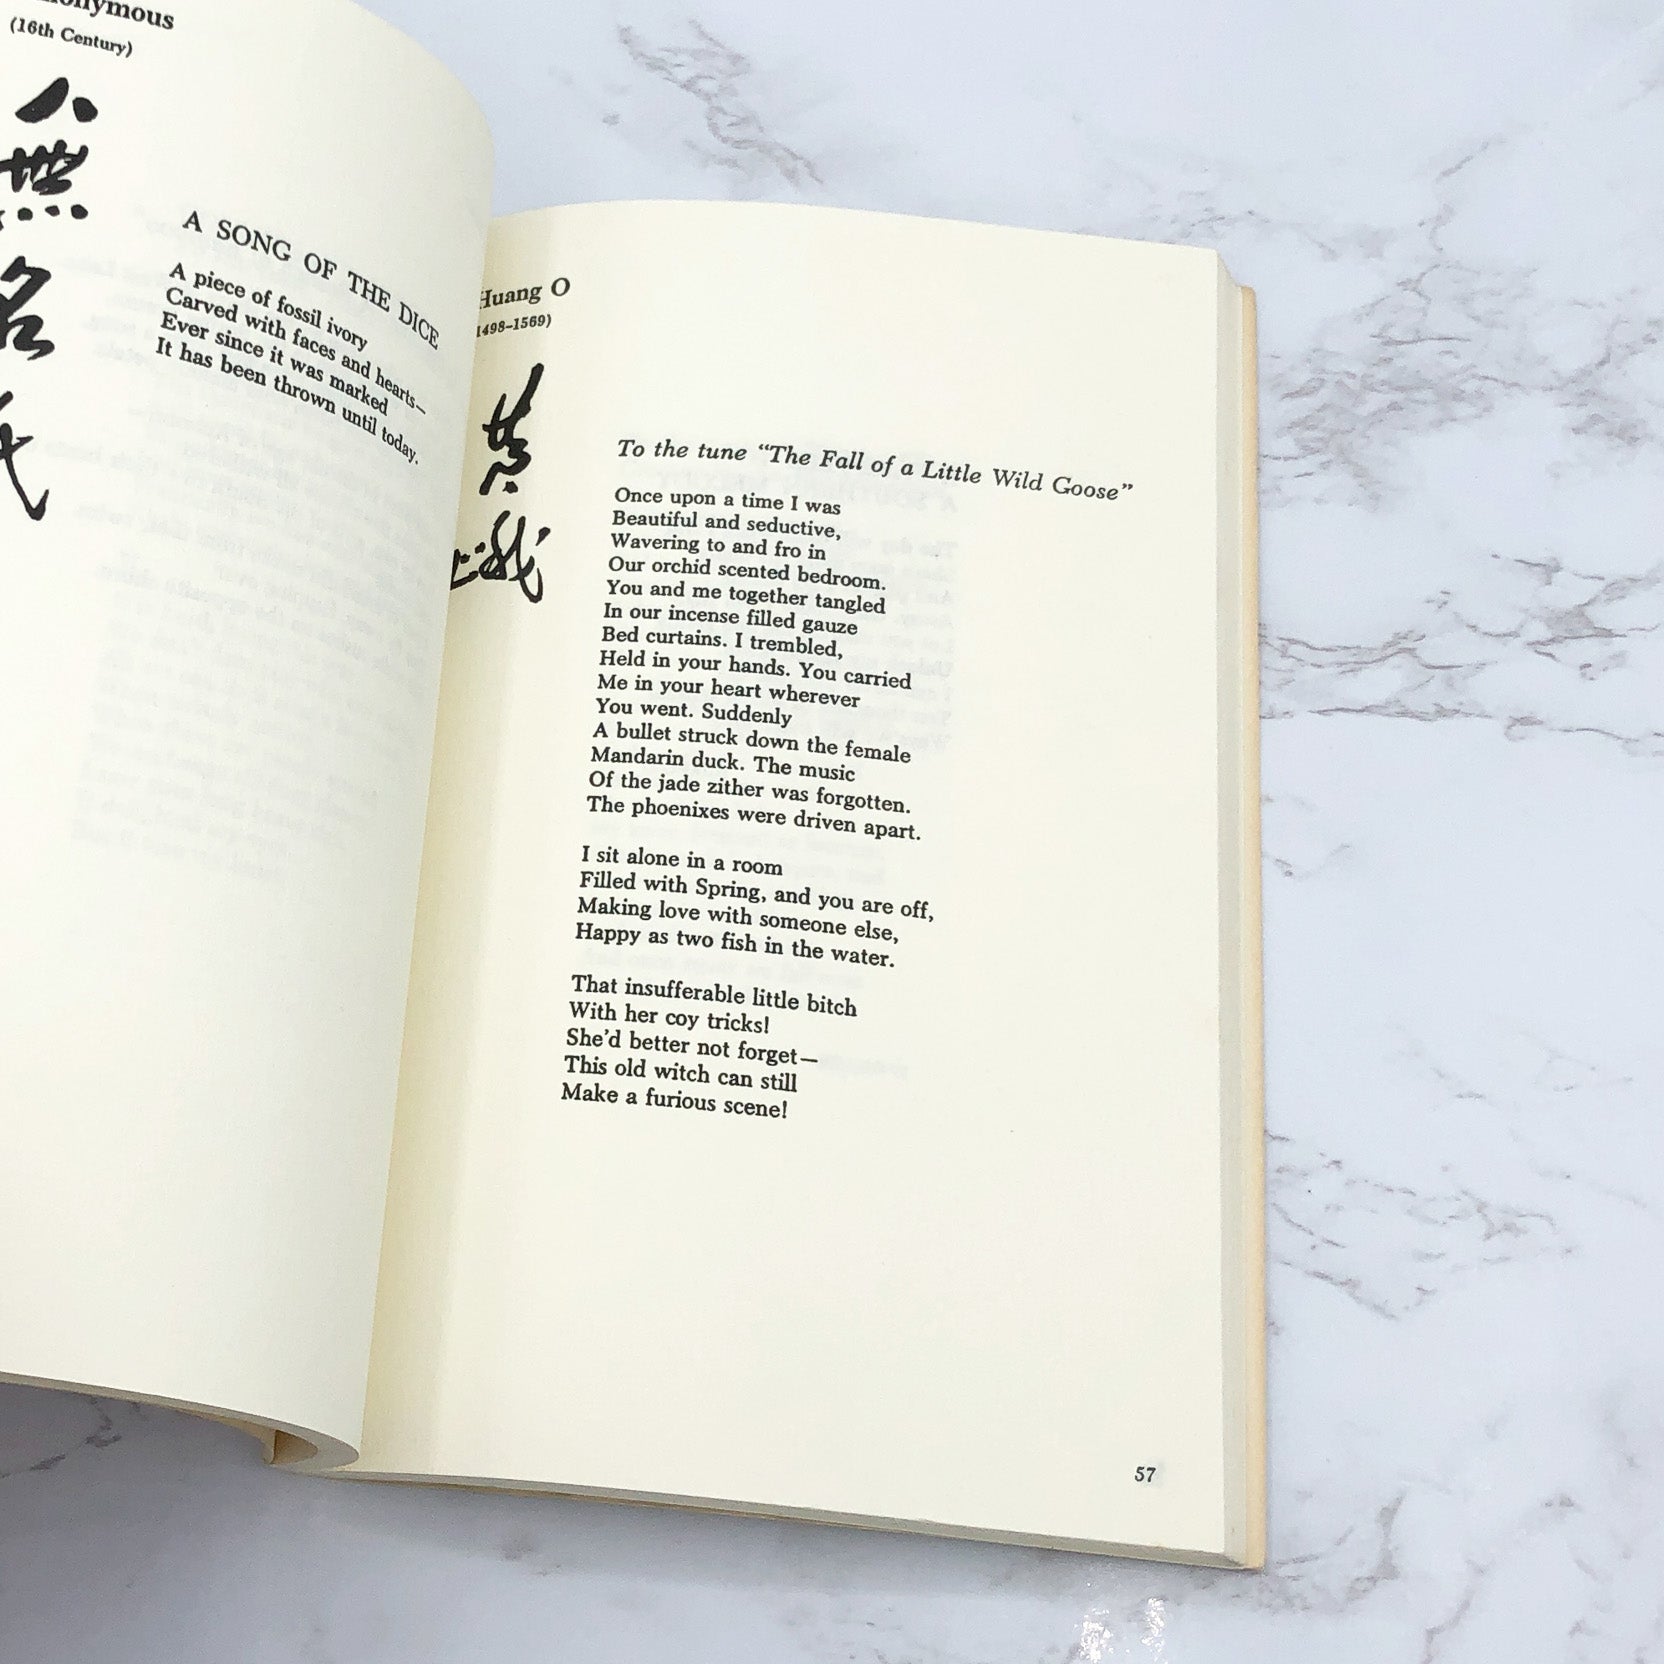 Anonymous
(16th Century)
無
名
氏
A SONG OF THE DICE
A piece of fossil ivory
Carved with faces and hearts—
Ever since it was marked
It has been thrown until today.
Huang O
(1498–1569)
黄
峨
To the tune “The Fall of a Little Wild Goose”
Once upon a time I was
Beautiful and seductive,
Wavering to and fro in
Our orchid scented bedroom.
You and me together tangled
In our incense filled gauze
Bed curtains. I trembled,
Held in your hands. You carried
Me in your heart wherever
You went. Suddenly
A bullet struck down the female
Mandarin duck. The music
Of the jade zither was forgotten.
The phoenixes were driven apart.
I sit alone in a room
Filled with Spring, and you are off,
Making love with someone else,
Happy as two fish in the water.
That insufferable little bitch
With her coy tricks!
She’d better not forget—
This old witch can still
Make a furious scene!
57